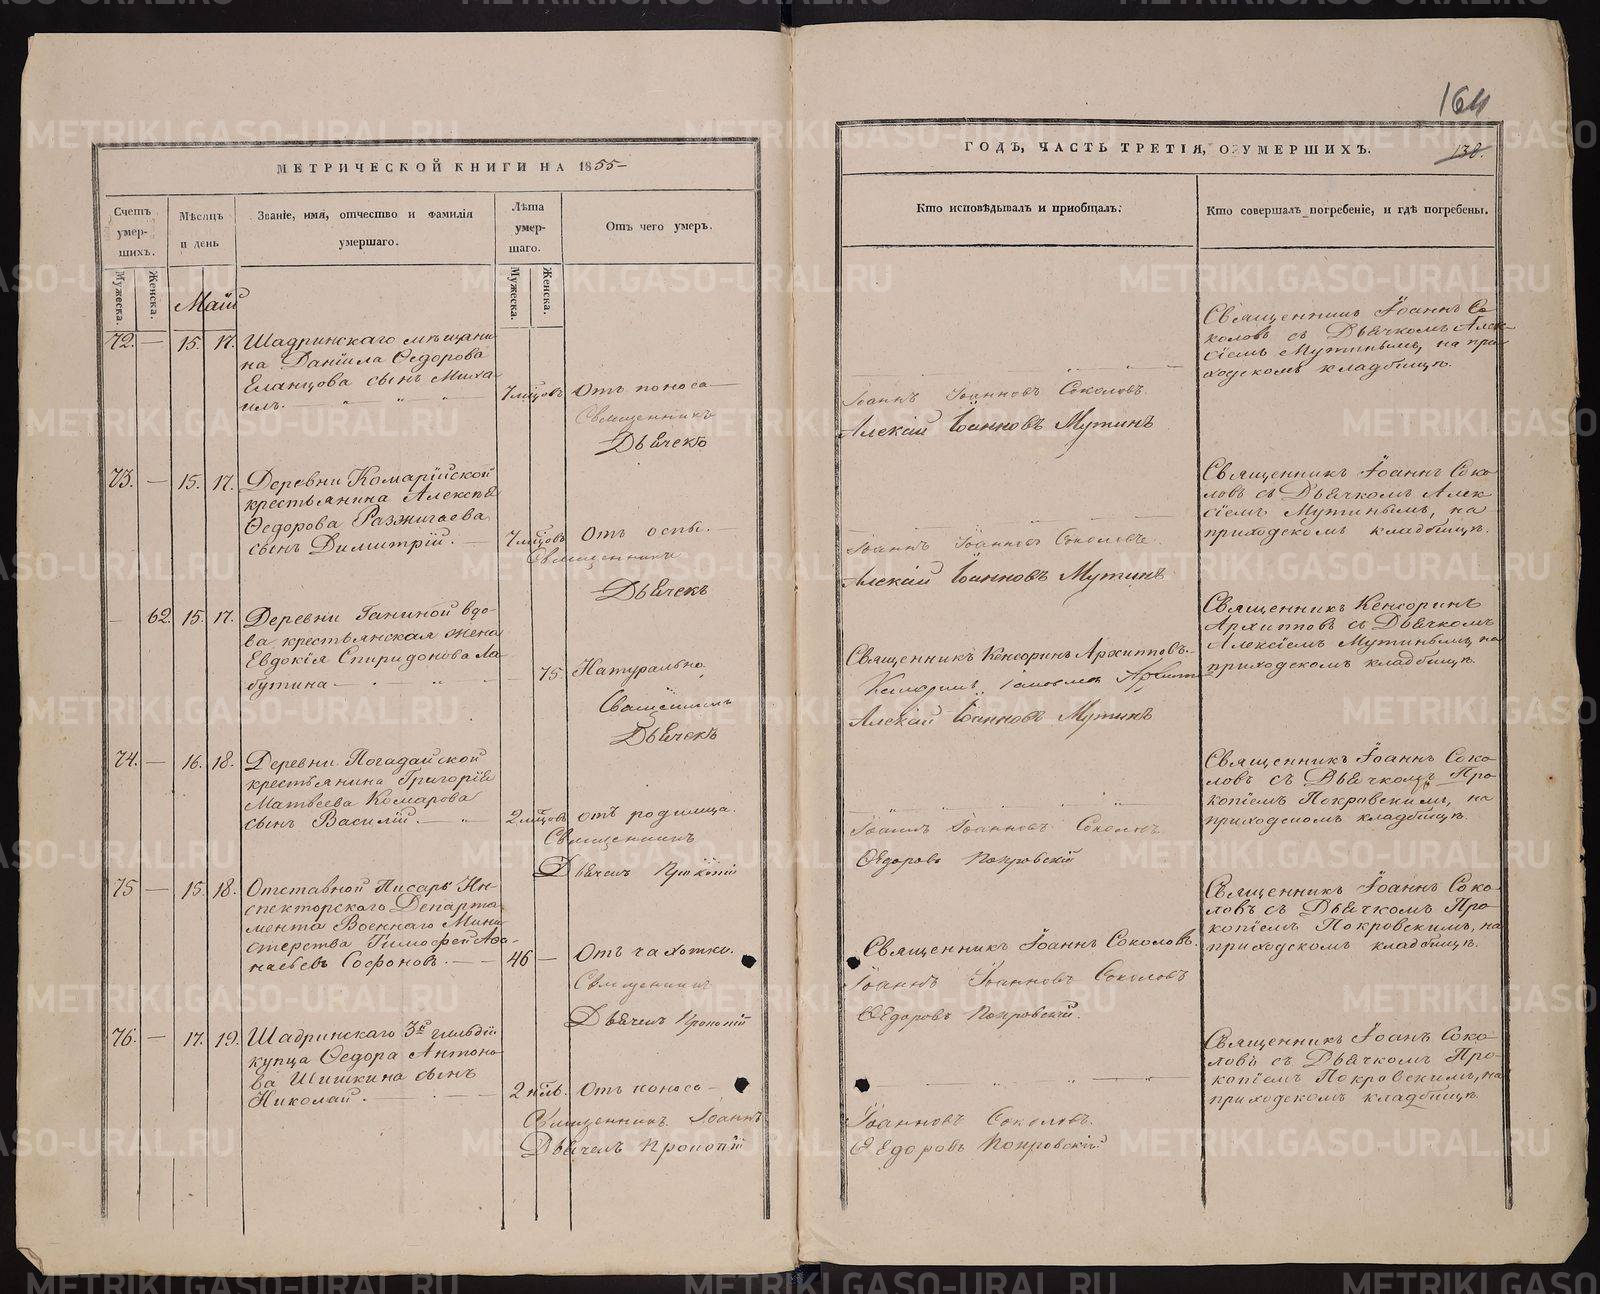 164
МЕТРИЧЕСКОЙ КНИГИ НА 1855
ГОДЪ, ЧАСТЬ ТРЕТІЯ, О УМЕРШИХЪ.
138.
Счетъ умер-шихъ.
Мужеска.
Женска.
Мѣсяцъ и день
Званіе, имя, отчество и фамилія умершаго.
Лѣта умер-шаго.
Мужеска.
Женска.
Отъ чего умеръ.
Кто исповѣдывалъ и пріобщалъ.
Кто совершалъ погребеніе, и гдѣ погребены.
Маій
72. — 15. 17. Шадринскаго мѣщани
на Даніила Ѳедорова
Еланцова сынъ Миха
илъ.
7 мѣцовъ Отъ поноса
Священникъ Іоаннъ Іоанновъ Соколовъ.
Дьячекъ Алексій Іоанновъ Мутинъ
Священникъ Іоаннъ Со
коловъ съ Дьячкомъ Алек
сіемъ Мутинымъ, на при
ходскомъ кладбищѣ.
73. — 15. 17. Деревни Комарійской
крестьянина Алексѣя
Ѳедорова Разжигаева
сынъ Димитрій.
7 мѣцовъ Отъ оспы.
Священникъ Іоаннъ Іоанновъ Соколовъ.
Дьячекъ Алексій Іоанновъ Мутинъ
Священникъ Іоаннъ Соко
ловъ съ Дьячкомъ Алек
сіемъ Мутинымъ, на
приходскомъ кладбищѣ.
— 62. 15. 17. Деревни Ганиной вдо
ва крестьянская жена
Евдокія Спиридонова Ла
бутина
— 75 Натурально.
Священникъ Кенсоринъ Архипповъ.
Священникъ
Дьячекъ Алексій Іоанновъ Мутинъ
Священникъ Кенсоринъ
Архипповъ съ Дьячкомъ
Алексіемъ Мутинымъ, на
приходскомъ кладбищѣ.
74. — 16. 18. Деревни Погадайской
крестьянина Григорія
Матвѣева Комарова
сынъ Василій.
2 мѣцовъ отъ родимца.
Священникъ Іоаннъ Іоанновъ Соколовъ
Дьячекъ Прокопій Ѳедоровъ Покровскій
Священникъ Іоаннъ Соко
ловъ съ Дьячкомъ Про
копіемъ Покровскимъ, на
приходскомъ кладбищѣ.
75 — 15. 18. Отставной Писарь Ин
спекторскаго Департа
мента Военнаго Мини
стерства Тимофей Аѳа
насьевъ Софоновъ.
46 — Отъ чахотки.
Священникъ Іоаннъ Соколовъ.
Священникъ Іоаннъ Іоанновъ Соколовъ
Дьячекъ Прокопій Ѳедоровъ Покровскій.
Священникъ Іоаннъ Соко
ловъ съ Дьячкомъ Про
копіемъ Покровскимъ, на
приходскомъ кладбищѣ.
76. — 17. 19. Шадринскаго 3й гильдіи
купца Ѳедора Антоно
ва Шишкина сынъ
Николай.
2 нѣль. Отъ поноса
Священникъ Іоаннъ Іоанновъ Соколовъ.
Дьячекъ Прокопій Ѳедоровъ Покровскій
Священникъ Іоанъ Соко
ловъ съ Дьячкомъ Про
копіемъ Покровскимъ, на
приходскомъ кладбищѣ.
METRIKI.GASO-URAL.RU